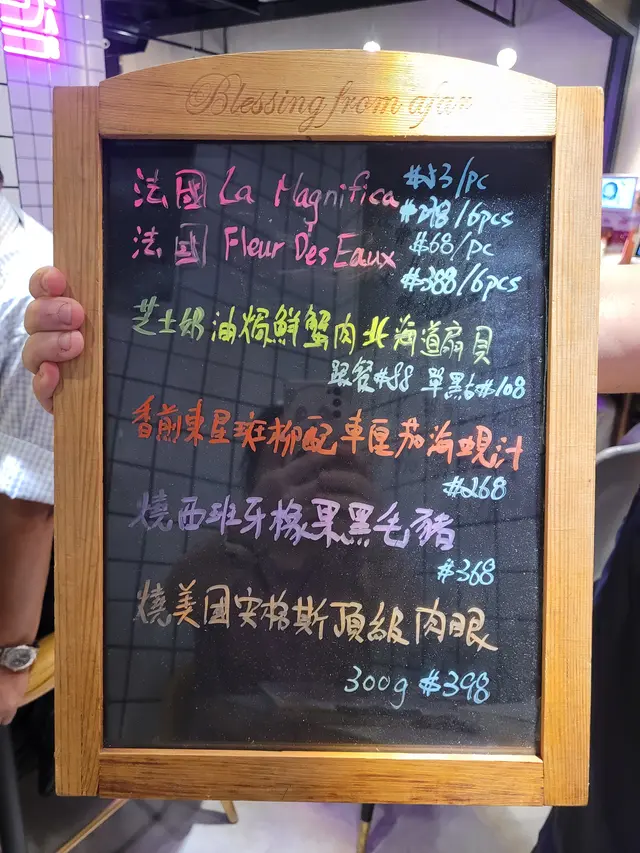 Blessing from afar
法國 La Magnifica $53/pc
$298/6pcs
法國 Fleur Des Eaux $68/pc
$388/6pcs
芝士奶油焗鮮蟹肉北海道扇貝
跟餐$88 單點$108
香煎東星斑柳配車厘茄海蜆汁
$268
燒西班牙橡果黑毛豬
$368
燒美国安格斯頂級肉眼
300g $398